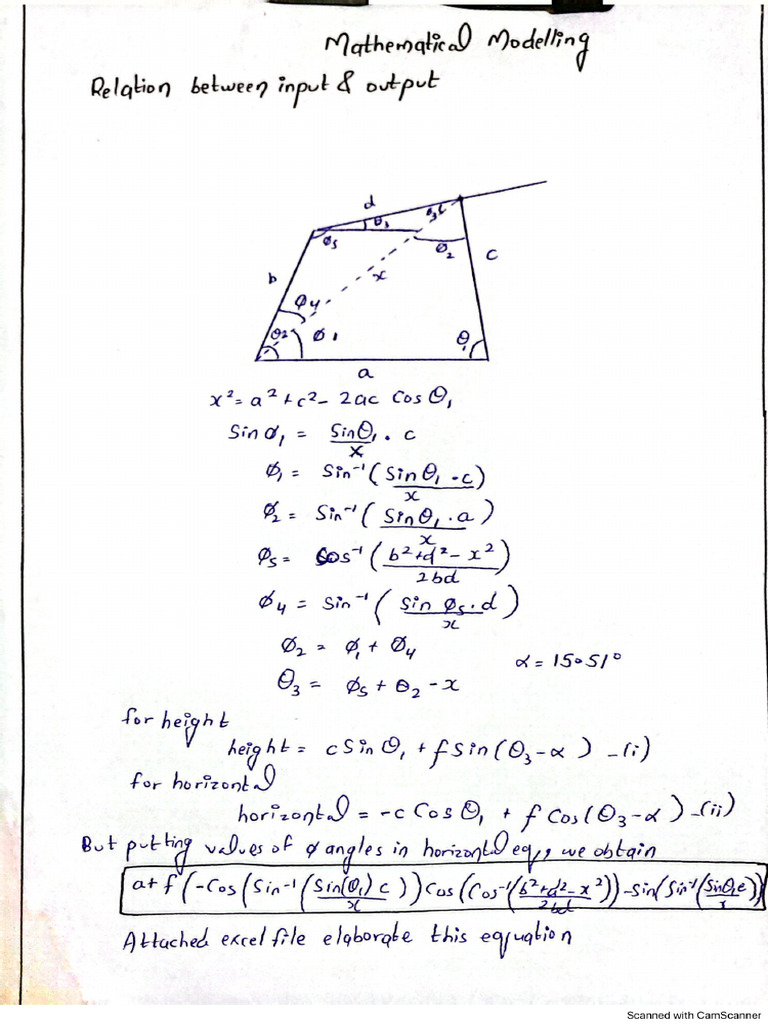 Mathematical Modelling
Relation between input & output
d
θ₃
ø₅
ø₂
c
b
x
ø₄
θ₂
ø₁
θ₁
a
x² = a² + c² - 2ac Cos θ₁
Sin ø₁ = Sinθ₁/x · c
ø₁ = Sin⁻¹(Sinθ₁ · c/x)
ø₂ = Sin⁻¹(Sinθ₁ · a/x)
ø₅ = Cos⁻¹(b² + d² - x²/2bd)
ø₄ = Sin⁻¹(Sin ø₅ · d/x)
ø₂ = ø₁ + ø₄
α = 15.51°
θ₃ = ø₅ + θ₂ - x
for height
height = c Sin θ₁ + f Sin(θ₃ - α) -(i)
for horizontal
horizontal = -c Cos θ₁ + f Cos(θ₃ - α) -(ii)
But putting values of ø angles in horizontal eq, we obtain
a + f(-Cos(Sin⁻¹(Sin(θ₁) c/x)) Cos(Cos⁻¹(b² + d² - x²/2bd)) - Sin(Sin⁻¹(Sinθ₁c/x))
Attached excel file elaborate this equation
Scanned with CamScanner